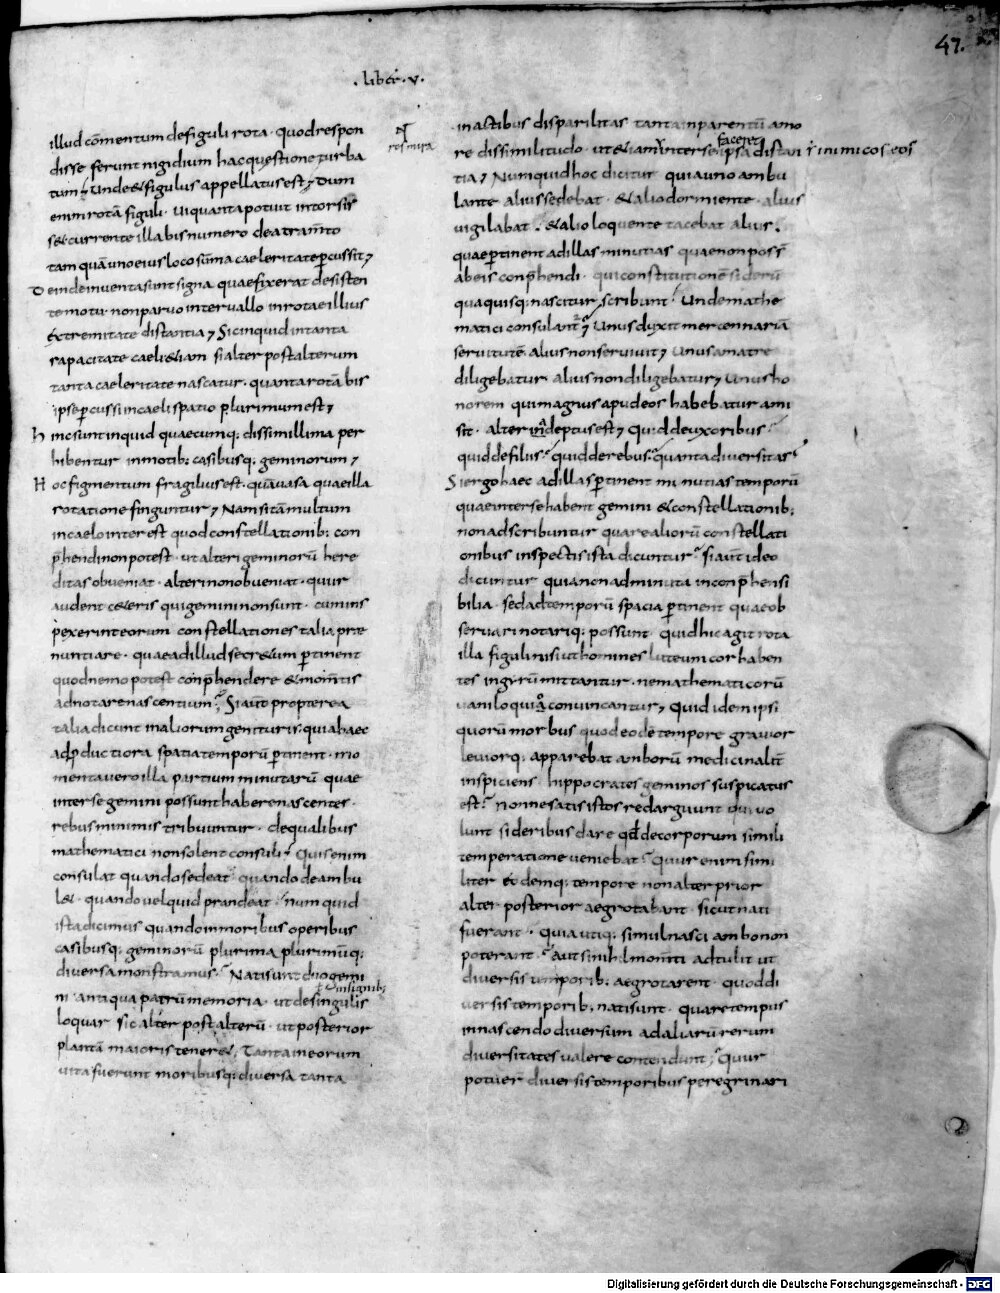 47.
.liber.v.
illud cōmentum defiguli rota. quodrespon
disse ferunt nigidium hacquestione turba
tum; Unde&figulus appellatusest; Dum
enim rotā figuli. ui quanta potuit intorsis
s& currente illa bis numero de atramto
tam quā unoeius loco sūma caeleritate pcussit;
Deinde inuentasunt signa quaefixerat desisten
te motu. nonparuo interuallo inrotae illius
extremitate distantia; Sicinquid intanta
rapacitate caeli&iam sialter postalterum
tanta caeleritate nascatur. quantarotā bis
ipse pcussi incaeli spatio plurimumest;
hinc sunt inquid quaecumq; dissimillima per
hibentur inmotib; casibusq; geminorum;
Hoc figmentum fragiliusest. quāuasa quaeilla
rotatione finguntur; Nam sitāmultum
incaelo interest quod constellationib; con
phendi nonpotest. ut alteri geminorū here
ditas obueniat. alteri nonobueniat. quur
audent c&eris quigemini nonsunt. cum ins
pexerint eorum constellationes talia prae
nuntiare. quae adillud secr&um ptinent
quod nemo potest conphendere & momtis
adnotare nascentium? Si aut propterea
talia dicunt inaliorum genituris. quia haec
ad pductiora spatia temporū ptinent. mo
menta uero illa partium minutarū quae
interse gemini possunt habere nascentes.
rebus minimis tribuuntur. dequalibus
mathematici nonsolent consuli? Quis enim
consulat quando sedeat quando deambu
l&. quando uelquid prandeat? num quid
ista dicimus quando inmoribus operibus
casibusq; geminorū plurima plurimūq;
diuersa monstramus? Nati sunt duo gemi
ni antiqua patrū memoria. ut de insignib; singulis
loquar sic alter post alterū. ut posterior
plantā maioris tener&; Tanta ineorum
uita fuerunt moribusq; diuersa tanta
inactibus disparilitas tanta inparentū amo
re dissimilitudo. ut &iam interse ipsa faceret distan inimicos eos
tia; Numquid hoc dicitur quia uno ambu
lante alius sedebat. &alio dormiente. alius
uigilabat. &alio loquente tacebat alius.
quae ptinent adillas minutias quae non poss
ab eis conphendi. qui constitutionē siderū
qua quisq; nascitur scribunt? Unde mathe
matici consulant; Unus duxit mercennariā
seruitutē. alius non seruiuit; Unus amatre
diligebatur. alius non diligebatur; Unus ho
norem qui magnus apud eos habebatur ami
sit. alter indeptus est; Quid deuxoribus?
quid defiliis? quid derebus? quanta diuersitas?
Si ergo haec adillas ptinent minutias temporū
quae inter se habent gemini &constellationib;
non adscribuntur quare aliorū constellati
onibus inspectis ista dicuntur? si aut ideo
dicuntur quia non ad minuta inconphensi
bilia. sed adtemporū spacia ptinent quae ob
seruari notariq; possunt quid hic agit rota
illa figuli nisi ut homines luteum cor haben
tes in gyrū mittantur. ne mathematicorū
uaniloquia conuincantur; Quid idem ipsi
quorū morbus quod eodē tempore grauior
leuiorq; apparebat amborū medicinalit
inspiciens. hippocrates geminos suspicatus
est? nonne satis istos redarguunt qui uo
lunt sideribus dare qd de corporum simili
temperatione ueniebat? quur enim simi
liter eodemq; tempore non alter prior
alter posterior aegrotabant. sicut nati
fuerant. quia utiq; simul nasci ambo non
poterant? Aut si nihil momti adtulit ut
diuersis temporib; aegrotarent. quod di
uersis temporib; nati sunt. quare tempus
in nascendo diuersum ad aliarū rerum
diuersitates ualere contendunt? Quur
potuer diuersis temporibus peregrinari
Digitalisierung gefördert durch die Deutsche Forschungsgemeinschaft - DFG